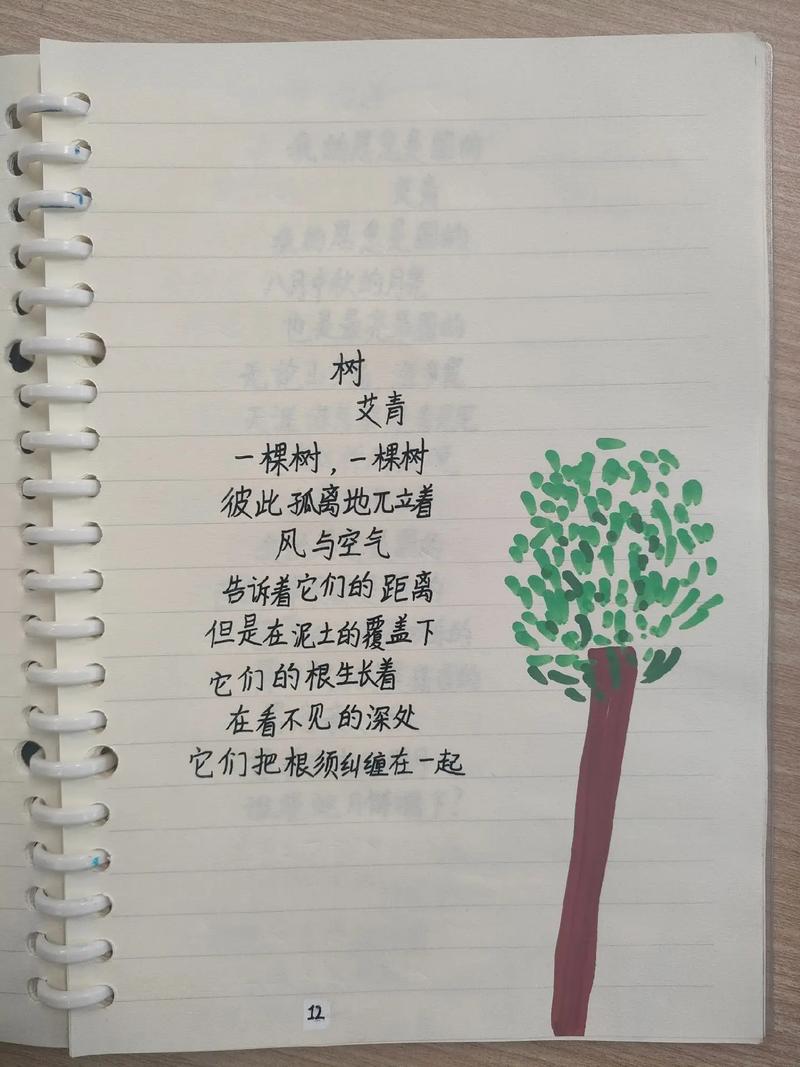 树
艾青
一棵树，一棵树
彼此孤离地兀立着
风与空气
告诉着它们的距离
但是在泥土的覆盖下
它们的根生长着
在看不见的深处
它们把根须纠缠在一起
12